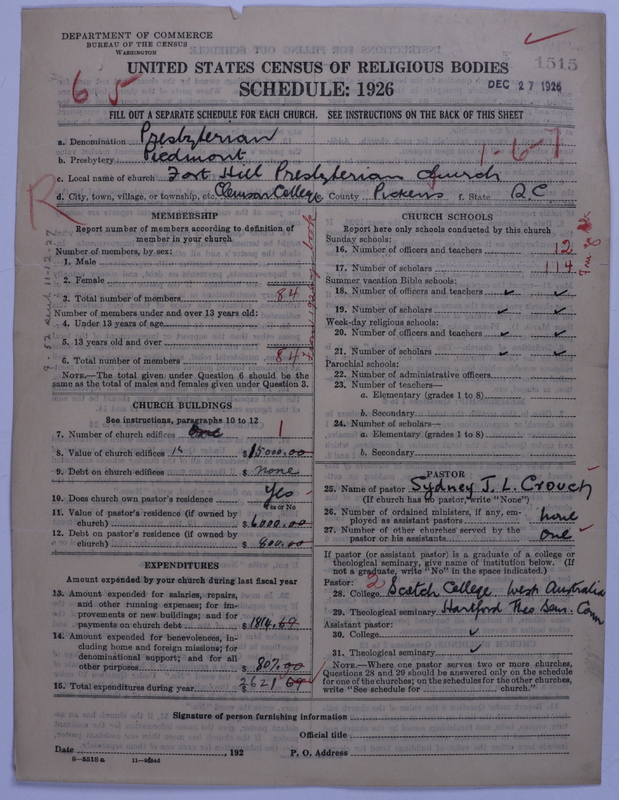 DEPARTMENT OF COMMERCE
BUREAU OF THE CENSUS
WASHINGTON
1515
UNITED STATES CENSUS OF RELIGIOUS BODIES
SCHEDULE: 1926
DEC 27 1926
65
FILL OUT A SEPARATE SCHEDULE FOR EACH CHURCH. SEE INSTRUCTIONS ON THE BACK OF THIS SHEET
a. Denomination Presbyterian
b. Presbytery Piedmont
1-6-7
c. Local name of church Fort Hill Presbyterian Church
d. City, town, village, or township, etc. Clemson College County Pickens f. State S.C.
R
MEMBERSHIP
Report number of members according to definition of
member in your church
Number of members, by sex:
1. Male
2. Female
3. Total number of members 84
Number of members under and over 13 years old:
4. Under 13 years of age
5. 13 years old and over
6. Total number of members 84
NOTE.—The total given under Question 6 should be the
same as the total of males and females given under Question 3.
CHURCH BUILDINGS
See instructions, paragraphs 10 to 12
7. Number of church edifices One 1
8. Value of church edifices $15000.00
9. Debt on church edifices $ none
10. Does church own pastor's residence Yes
Yes or No
11. Value of pastor's residence (if owned by
church) $6000.00
12. Debt on pastor's residence (if owned by
church) $ 800.00
EXPENDITURES
Amount expended by your church during last fiscal year
13. Amount expended for salaries, repairs,
and other running expenses; for im-
provements or new buildings; and for
payments on church debt $1814.69
14. Amount expended for benevolences, in-
cluding home and foreign missions; for
denominational support; and for all
other purposes $ 807.00
15. Total expenditures during year $2621 69
CHURCH SCHOOLS
Report here only schools conducted by this church
Sunday schools:
16. Number of officers and teachers 12
17. Number of scholars 114
Summer vacation Bible schools:
18. Number of officers and teachers
19. Number of scholars
Week-day religious schools:
20. Number of officers and teachers
21. Number of scholars
Parochial schools:
22. Number of administrative officers
23. Number of teachers—
a. Elementary (grades 1 to 8)
b. Secondary
24. Number of scholars—
a. Elementary (grades 1 to 8)
b. Secondary
PASTOR
25. Name of pastor Sydney J. L. Crouch
(If church has no pastor, write "None")
26. Number of ordained ministers, if any, em-
ployed as assistant pastors none
27. Number of other churches served by the
pastor or his assistants one
If pastor (or assistant pastor) is a graduate of a college or
theological seminary, give name of institution below. (If
not a graduate, write "No" in the space indicated.)
Pastor: 2
28. College Scotch College West Australia
29. Theological seminary Hartford Theo Sem. Conn
Assistant pastor:
30. College
31. Theological seminary
NOTE.—Where one pastor serves two or more churches,
Questions 28 and 29 should be answered only on the schedule
for one of the churches; on the schedules for the other churches,
write "See schedule for church."
Signature of person furnishing information
Official title
Date , 192 P. O. Address
8-5518 a